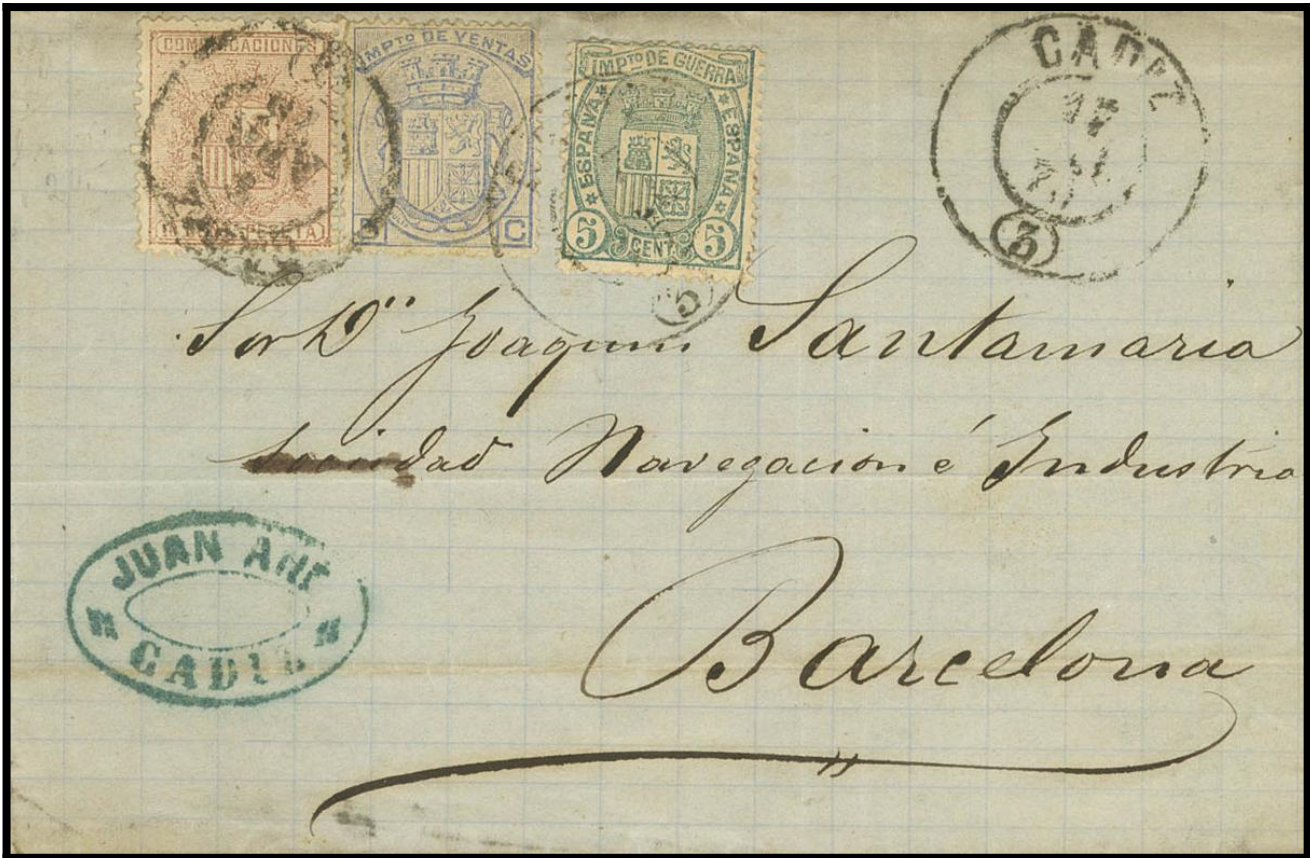 COMUNICACIONES
PESETA
IMPTO DE VENTAS
C
IMPTO DE GUERRA
ESPAÑA
ESPAÑA
5 CENT 5
CADIZ
17
(3)
(3)
Sor Dn Joaquin Santamaria
Sociedad Navegacion é Industria
Barcelona
JUAN
CADIZ